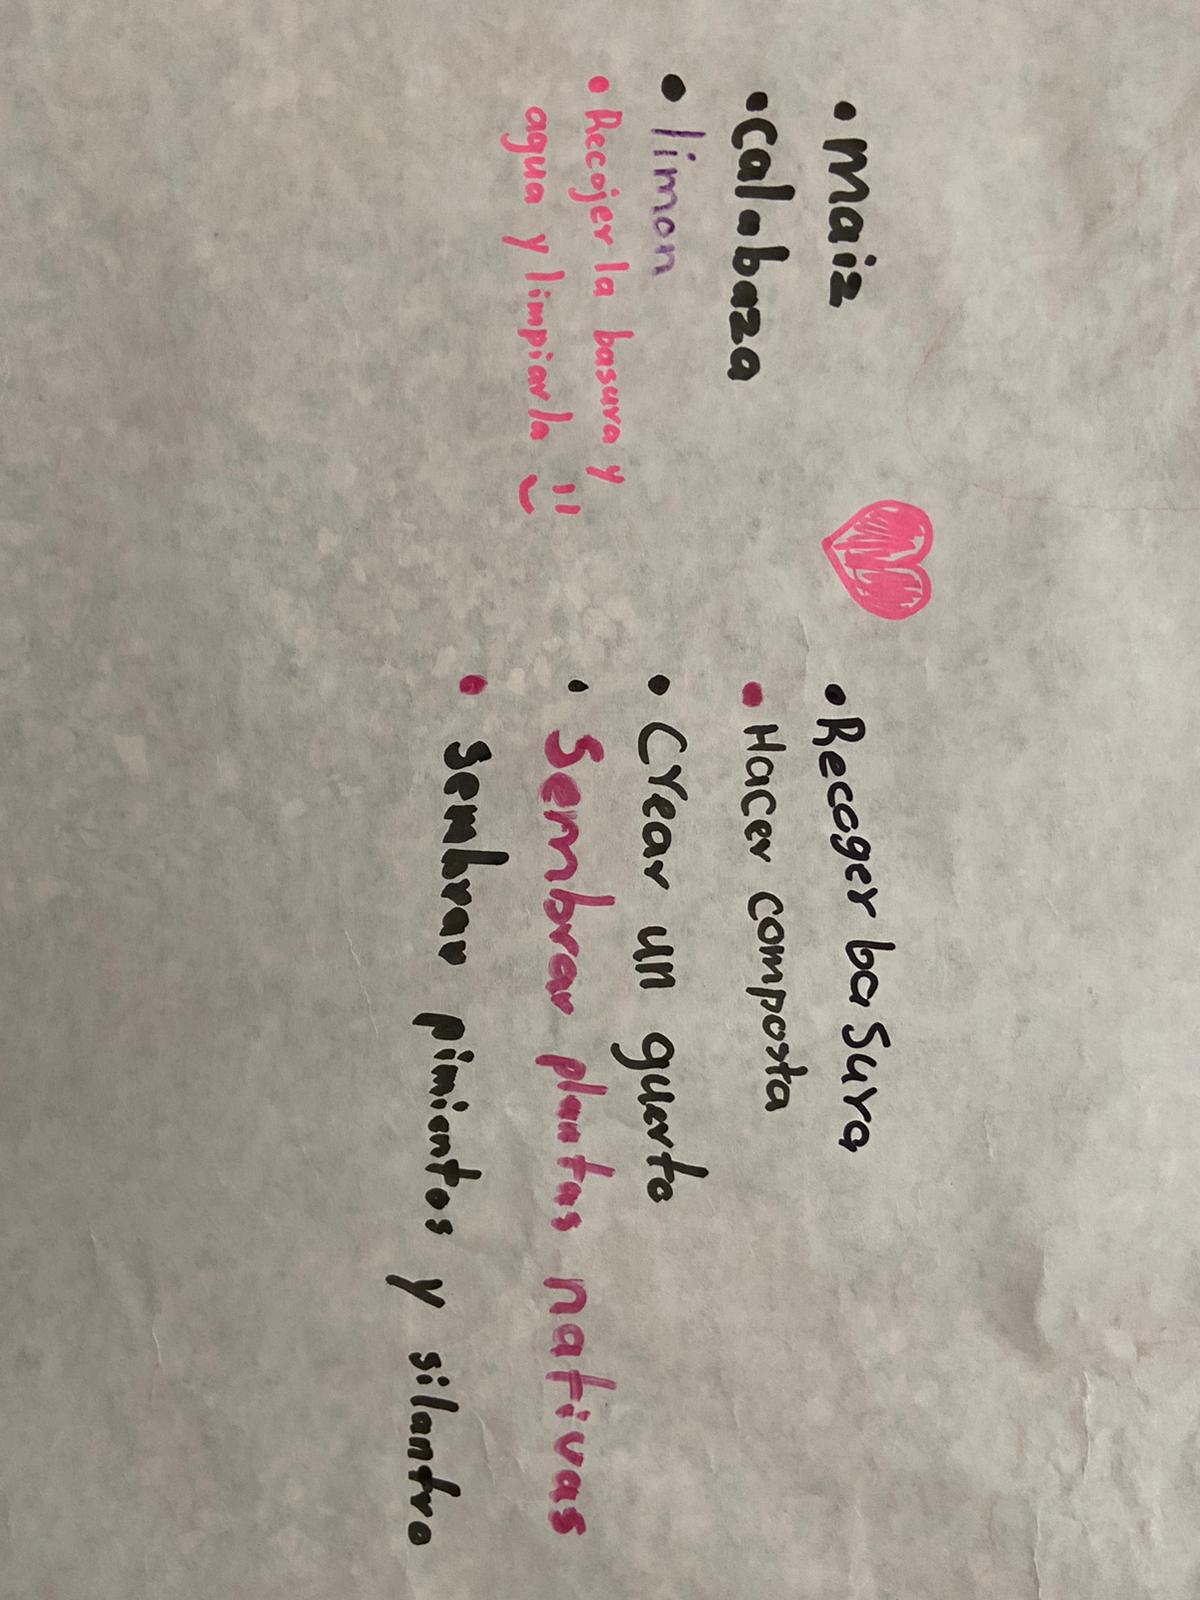 • Maiz
• Calabaza
• limon
• Recojer la basura y
agua y limpiarla
• Recoger basura
• Hacer composta
• Crear un guerto
• Sembrar plantas nativas
• Sembrar pimientos y silantro